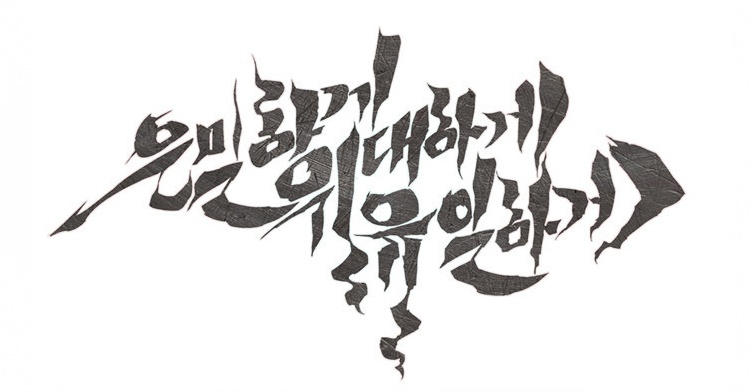 은밀하게
위대하게
유일하게